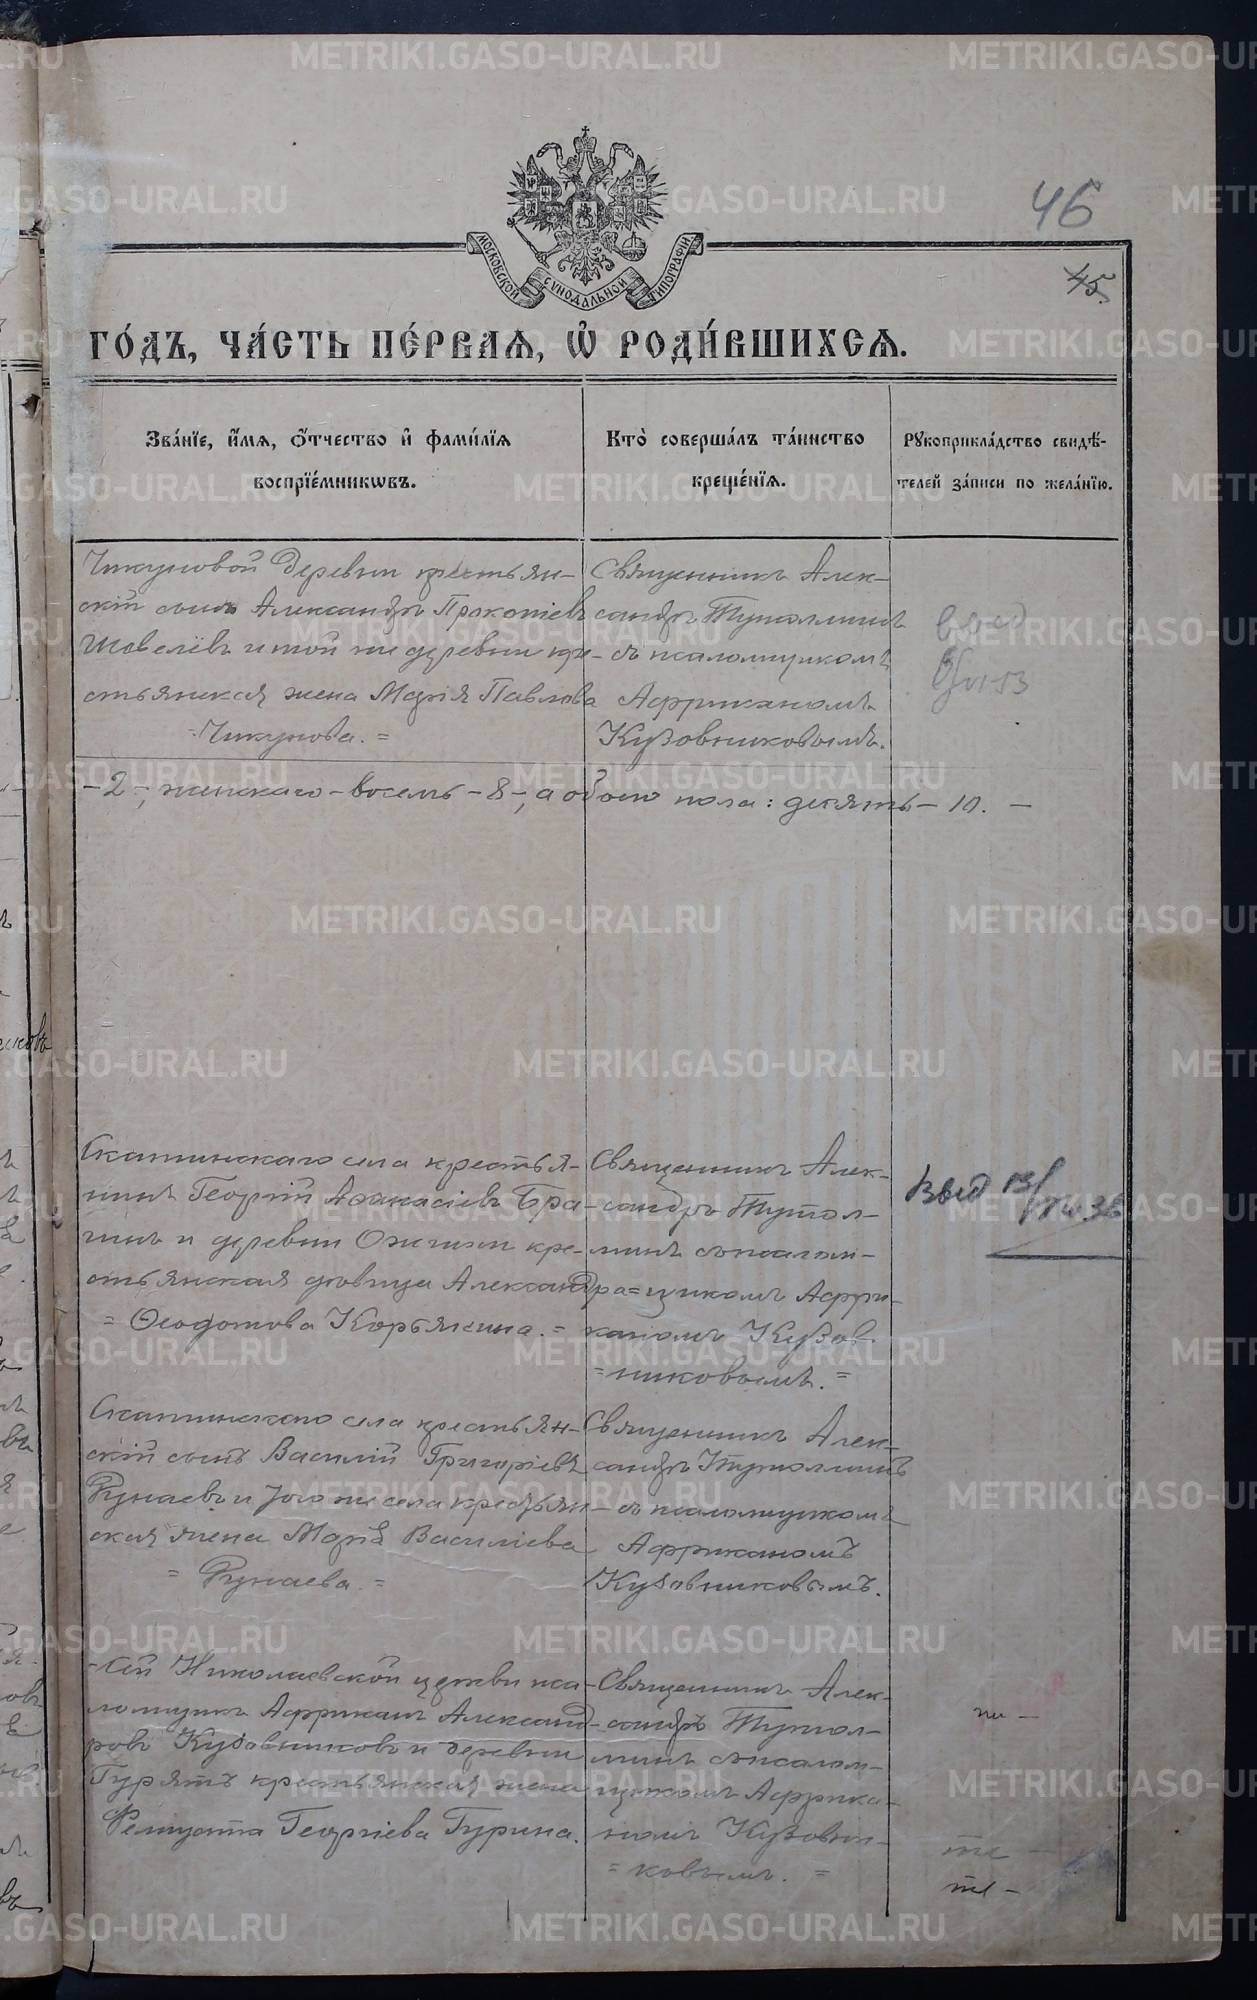 46
45.
МОСКОВСКОЙ СѴНОДАЛЬНОЙ ТИПОГРАФІИ
ГО́ДЪ, ЧА́СТЬ ПЕ́РВАѦ, Ѡ҆ РОДИ́ВШИХСѦ.
Зва́нїе, и҆́мѧ, ѻ҆́тчество и҆ фами́лїѧ
воспрїе́мникѡвъ.
Кто̀ соверша́лъ та́инство
креще́нїѧ.
Рꙋкоприкла́дство свидѣ́-
телей за́писи по жела́нїю.
Чикуновой деревни крестьян-
скій сынъ Александръ Прокопіевъ
Шовелёвъ и той же деревни кре-
стьянская жена Марія Павлова
= Чикунова. =
Священникъ Алек-
сандръ Тутолминъ
съ псаломщикомъ
Африканомъ
Кузовниковымъ.
-2-, женскаго - восемь - 8 -, а обоего пола: десять - 10. -
Скатинскаго села крестья-
нинъ Георгій Аѳанасіевъ Бра-
гинъ и деревни кре-
стьянская дѣвица Александра =
= Ѳеодотова Корьякина. =
Священникъ Алек-
сандръ Тутол-
минъ съ псалом-
щикомъ Афри-
каномъ Кузов-
= никовымъ. =
Скатинскаго села крестьян-
скій сынъ Василій Григоріевъ
Рунаевъ и того же села крестьян-
ская жена Марія Василіева
= Рунаева. =
Священникъ Алек-
сандръ Тутолминъ
съ псаломщикомъ
Африканомъ
Кузовниковымъ.
-кой Николаевской церкви пса-
ломщикъ Африканъ Александ-
ровъ Кузовниковъ и деревни
Гурятъ крестьянская жена
Фелицата Георгіева Гурина.
Священникъ Алек-
сандръ Тутол-
минъ съ псалом-
щикомъ Африка-
номъ Кузовни-
= ковымъ. =
METRIKI.GASO-URAL.RU